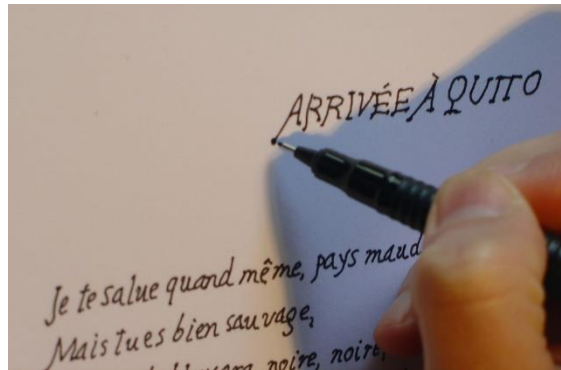 ARRIVÉE À QUITO
Je te salue quand même, pays maud
Mais tu es bien sauvage,
noire, noire,